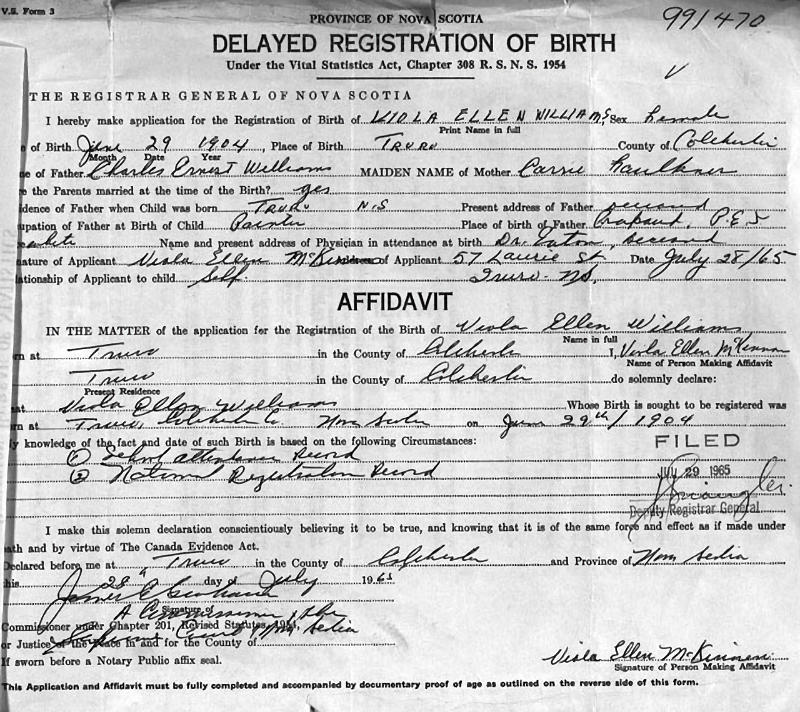 V.S. Form 3
PROVINCE OF NOVA SCOTIA
991470
DELAYED REGISTRATION OF BIRTH
Under the Vital Statistics Act, Chapter 308 R. S. N. S. 1954
THE REGISTRAR GENERAL OF NOVA SCOTIA
I hereby make application for the Registration of Birth of VIOLA ELLEN WILLIAMS, Sex Female
Print Name in full
e of Birth June 29 1904, Place of Birth TRURO County of Colchester
Month Date Year
e of Father Charles Ernest Williams MAIDEN NAME of Mother Carrie Faulkner
e the Parents married at the time of the Birth? yes
idence of Father when Child was born TRURO N.S Present address of Father
upation of Father at Birth of Child Painter Place of birth of Father Crapaud, P.E.I
Name and present address of Physician in attendance at birth Dr. Eaton,
nature of Applicant Viola Ellen McKinnon of Applicant 57 Laurie St Date July 28/65
ationship of Applicant to child Self Truro NS.
AFFIDAVIT
IN THE MATTER of the application for the Registration of the Birth of Viola Ellen Williams
Name in full
rn at Truro in the County of Colchester I, Viola Ellen McKinnon
Name of Person Making Affidavit
Truro in the County of Colchester do solemnly declare:
Present Residence
at Viola Ellen Williams Whose Birth is sought to be registered was
rn at Truro, Colchester Co. Nova Scotia on June 29th / 1904
y knowledge of the fact and date of such Birth is based on the following Circumstances:
FILED
① School attendance Record
② National Registration Record
JUL 29 1965
Deputy Registrar General
I make this solemn declaration conscientiously believing it to be true, and knowing that it is of the same force and effect as if made under
ath and by virtue of The Canada Evidence Act.
Declared before me at Truro in the County of Colchester and Province of Nova Scotia
his 28 day of July 1965
James E.
Signature of
A Commissioner of the
Commissioner under Chapter 201, Revised Statutes 1954,
Supreme Court of Nova Scotia
or Justice of the Peace in and for the County of
If sworn before a Notary Public affix seal.
Viola Ellen McKinnon
Signature of Person Making Affidavit
This Application and Affidavit must be fully completed and accompanied by documentary proof of age as outlined on the reverse side of this form.